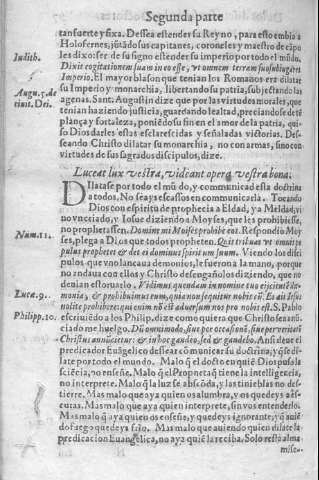 Segunda parte
tan fuerte y fixa. Dessea estender su Reyno, para esto embio a
Holofernes, jútádo sus capitanes, coroneles y maestro de cápo
Iudith.
les dixo: ser de su signo estender su imperio por todo el múdo.
Dixit cogitationem suam in eo esse, vt omnem terram suo subiugaret
Imperio. El mayor blason que tenian los Romanos era dilatar
Augu. 5. de
su Imperio y monarchia, libertando su patria, subjectando las
ciuit. Dei.
agenas. Sant Augustin dize que por las virtudes morales, que
tenian haziendo justicia, guardando lealtad, preciandose de té
plança y fortaleza, poniédo su fin en el amor de la patria, qui-
so Dios darles estas esclarescidas y señaladas victorias. Des-
seando Christo dilatar su monarchia, no con armas, sino con
virtudes de sus sagrados discipulos, dize.
Luceat lux vestra, videant opera vestra bona.
Dilatase por todo el mũdo, y communicad esta doctrina
a todos. No seays escassos en communicarla. Tocando
Dios con espiritu de prophecia a Eldad, y a Meldad, vi
no vn criado, y Iosue diziendo a Moyses, que les prohibiesse,
Num. 11.
no prophetassen. Domine mi Moises prohibe eos. Respondio Moy
ses, plega a Dios que todos propheten. Quis tribuat vt omnis po
pulus prophetet & det eis dominus spiritum suum. Viendo los disci
pulos que vno lançaua demonios, le fueron a la mano, porque
no andaua con ellos y Christo desengañolos diziendo, que no
deuian estoruarlo. Vidimus quendam in nomine tuo eijcienté dæ-
Lucæ. 9.
monia, & prohibuimus eum, quia non sequitur nobiscũ. Et ait Iesus
nolite prohibere: qui enim nó est aduersum nos pro nobis est. S. Pablo
Philipp. 10.
escriuiẽdo a los Philip. dize como quiera que Christo sea anũ-
ciado me huelgo. Dũ omni modo, siue per occasionẽ, siue per veritatẽ
Christus annũcietur: & in hoc gaudeo, sed & gaudebo. Ansi deue el
predicador Euangelico dessear cõmunicar su doctrina, y q̃ se di-
late por todo el mundo. Malo q̃ el docto en quiẽ Dios puso la
sciẽcia, no enseñe. Malo q̃ el Propheta q̃ tiene la intelligencia,
no interprete. Malo q̃ la luz se abscõda, y las tinieblas no de-
stierre. Mas malo que aya quien os alumbra, y os quedeys abs-
curas. Mas malo que aya quien interprete, sin vos entenderlo.
Mas malo q̃ aya quien os enseñe, y quedeys ignorante, y q̃ auiẽ
do fuego quedeys frio. Mas malo que auiendo quien dilate la
predicacion Euangelica, no aya quiẽ la reciba. Solo resta al ma
mise-